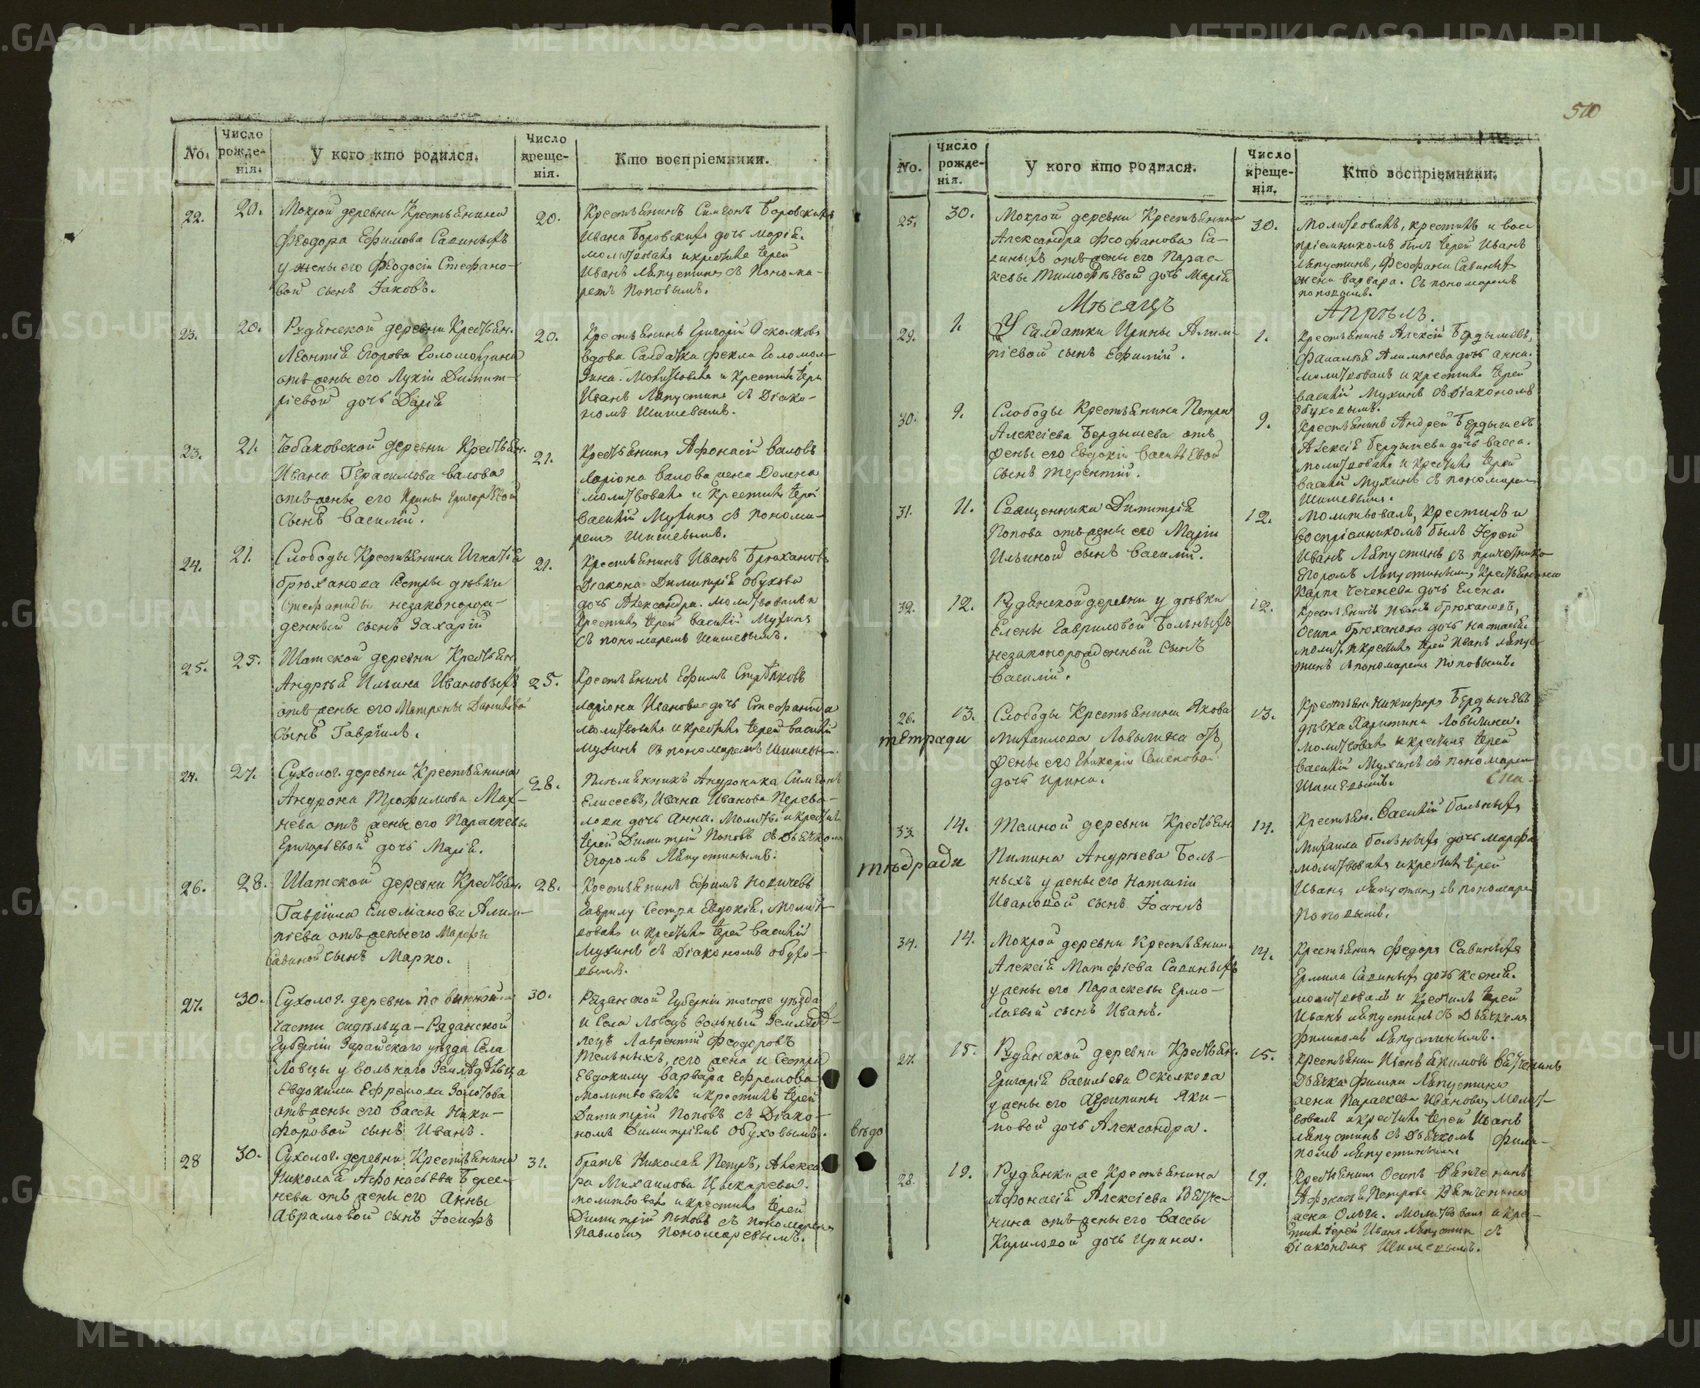 510
No.
Число рожде-нія.
У кого кто родился.
Число креще-нія.
Кто воспріемники.
22.
20.
Мокрой деревни Крестьянина
Феодора Ефимова Савиныхъ
у жены его Феодосіи Стефано-
вой сынъ Іаковъ.
20.
Крестьянинъ Симеонъ Боровскихъ
Ивана Боровскихъ дочь Марія.
молитвовалъ и крестилъ Іерей
Иванъ Ляпустинъ съ Понома-
ремъ Поповымъ.
23.
20.
Рудянской деревни Крестьян.
Леонтія Егорова Соломеина
отъ жены его Лукіи Димит-
ріевой дочь Дарія
20.
Крестьянинъ Григорій Осколковъ
вдова Салдатка Фекла
молитвовалъ и крестилъ Іерей
Иванъ Ляпустинъ съ Діако-
номъ Шишевымъ.
23.
21.
деревни Крестьян.
Ивана Герасимова Валова
отъ жены его Ирины Григорьевой
Сынъ Василій.
21.
Крестьянинъ Афонасій Валовъ
Ларіона Валова жена
молитвовалъ и крестилъ Іерей
Василій Мухинъ съ Понома-
ремъ Шишевымъ.
24.
21.
Слободы Крестьянина Игнатія
Брюханова Сестры девки
Степаниды незаконорож-
денный сынъ Захарій
21.
Крестьянинъ Иванъ Брюхановъ
Діакона Димитрія Обухова
дочь Александра. молитвовалъ и
крестилъ Іерей Василій Мухинъ
съ пономаремъ Шишевымъ.
25.
25.
Шатской деревни Крестьян.
Андрея Ильина Ивановыхъ
отъ жены его Матрены Даниловой
Сынъ Гавріилъ.
25.
Крестьянинъ Ефимъ Стрелковъ
Ларіона Иванова дочь Стефанида
молитвовалъ и крестилъ Іерей Василій
Мухинъ съ пономаремъ Шишевы-
27.
Сухолог. деревни Крестьянина
Андрона Трофимова Мах-
нева отъ жены его Параскевы
Григорьевой дочь Марія.
28.
Письменникъ Андроника Симеонъ
Елисеевъ, Ивана Иванова
дочь Анна. Молитв. и крестилъ
Іерей Димитрій Поповъ съ Дьячкомъ
Егоромъ Ляпустинымъ.
26.
28.
Шатской деревни Крестьян.
Гавріила Емеліанова Алим-
піева отъ жены его Марфы
Савиной сынъ Марко.
28.
Крестьянинъ Ефимъ
Гаврилу Сестра Евдокія. Молит-
вовалъ и крестилъ Іерей Василій
Мухинъ съ Діакономъ Обухо-
вымъ.
27.
30.
Сухолог. деревни по винной
части сидельца Рязанской
Губерніи Зарайскаго уезда Села
Ловцы у вольнаго Земледельца
Евдокима Ефремова Золотова
отъ жены его Вассы Ники-
форовой сынъ Иванъ.
30.
Рязанской Губерніи тогоже уезда
и Села Ловцъ вольный Землед-
лецъ Лаврентій Феодоровъ
его жена и Сестра
Евдокиму Варвара Ефремова
молитвовалъ и крестилъ Іерей
Димитрій Поповъ съ Діако-
номъ Димитріемъ Обуховымъ.
28
30.
Сухолог. деревни Крестьянина
Николая Афонасьева Береж-
нева отъ жены его Анны
Аврамовой сынъ Іосифъ
31.
братъ Николая Петръ, Алекса
ра Михаилова Цыкарева.
молитвовалъ и крестилъ Іерей
Димитрій Поповъ съ пономаремъ
Павломъ Пономаревымъ.
No.
Число рожде-нія.
У кого кто родился.
Число креще-нія.
Кто воспріемники.
25.
30.
Мокрой деревни Крестьянина
Александра Феофанова Са-
виныхъ отъ жены его Парас-
кевы Тимофеевой дочь Марія
30.
Молитвовалъ, крестилъ и вос-
пріемникомъ былъ Іерей Иванъ
Ляпустинъ, Феофана Савиныхъ
жена Варвара. Съ пономаремъ
поповымъ.
Месяцъ Апрель.
29.
1.
У Салдатки Ирины Алим-
піевой сынъ Ефимій.
1.
Крестьянинъ Алексій Бердышевъ,
Алимпіева дочь Анна.
молитвовалъ и крестилъ Іерей
Василій Мухинъ съ Діакономъ
Обуховымъ.
30.
9.
Слободы Крестьянина Петра
Алексіева Бердышева отъ
жены его Евдокіи Васильевой
сынъ Терентій.
9.
Крестьянинъ Андрей Бердышевъ
Алексія Бердышева дочь Васса.
молитвовалъ и крестилъ Іерей
Василій Мухинъ съ пономаремъ
Шишевымъ.
31.
11.
Священника Димитрія
Попова отъ жены его Маріи
Ильиной сынъ Василій.
12.
Молитвовалъ, крестилъ и
воспріемникомъ былъ Іерей
Иванъ Ляпустинъ съ причетнико
Егоромъ Ляпустинымъ, Крестьянина
Карпа Чеченева дочь Елена.
32.
12.
Рудянской деревни у девки
Елены Гавриловой Больныхъ
незаконорожденный сынъ
Василій.
12.
Крестьянинъ Иванъ Брюхановъ,
Осипа Брюханова дочь Настасія
молит. и крестилъ Іерей Иванъ Ляпус-
тинъ съ пономаремъ Поповымъ.
26.
тетради
13.
Слободы Крестьянина Якова
Михаилова Ловыгина отъ
жены его Гликеріи Семеновой
дочь Ирина.
13.
Крестьян. Никифоръ Бердышевъ
девка Харитина Ловыгина.
молитвовалъ и крестилъ Іерей
Василій Мухинъ съ пономарем
Шишевымъ.
33.
тетради
14.
Таиной деревни Крестьян.
Пимина Андреева Боль-
ныхъ у жены его Наталіи
Ивановой сынъ Іоаннъ
14.
Крестьян. Василій Больныхъ
Михаила Больныхъ дочь Марфа
молитвовалъ и крестилъ Іерей
Иванъ Ляпустинъ съ пономаре
Поповымъ.
34.
14.
Мокрой деревни Крестьянин.
Алексія Матфіева Савиныхъ
у жены его Параскевы Ермо-
лаевой сынъ Иванъ.
14.
Крестьянинъ Федоръ Савиныхъ
Ермила Савиныхъ дочь Ксенія.
молитвовалъ и крестилъ Іерей
Иванъ Ляпустинъ съ Дьячкомъ
Филипомъ Ляпустинымъ.
27.
15.
Рудянской деревни Крестьян.
Григорія Васильева Осколкова
у жены его Агрипины Яки-
мовой дочь Александра.
15.
Дьячка Филипа Ляпустина
жена Параскева Иванова. Молит-
вовалъ и крестилъ Іерей Иванъ
Ляпустинъ съ Дьячкомъ Фили-
помъ Ляпустинымъ.
28.
19.
Рудянки же Крестьянина
Афонасія Алексіева Вяче-
нина отъ жены его Вассы
Кириловой дочь Ирина.
19.
Крестьянинъ Осипъ
Афонасія Петрова
жена Ольга. Молитвовалъ и кре-
стилъ Іерей Иванъ Ляпустинъ съ
Діакономъ Шишевымъ.
METRIKI.GASO-URAL.RU